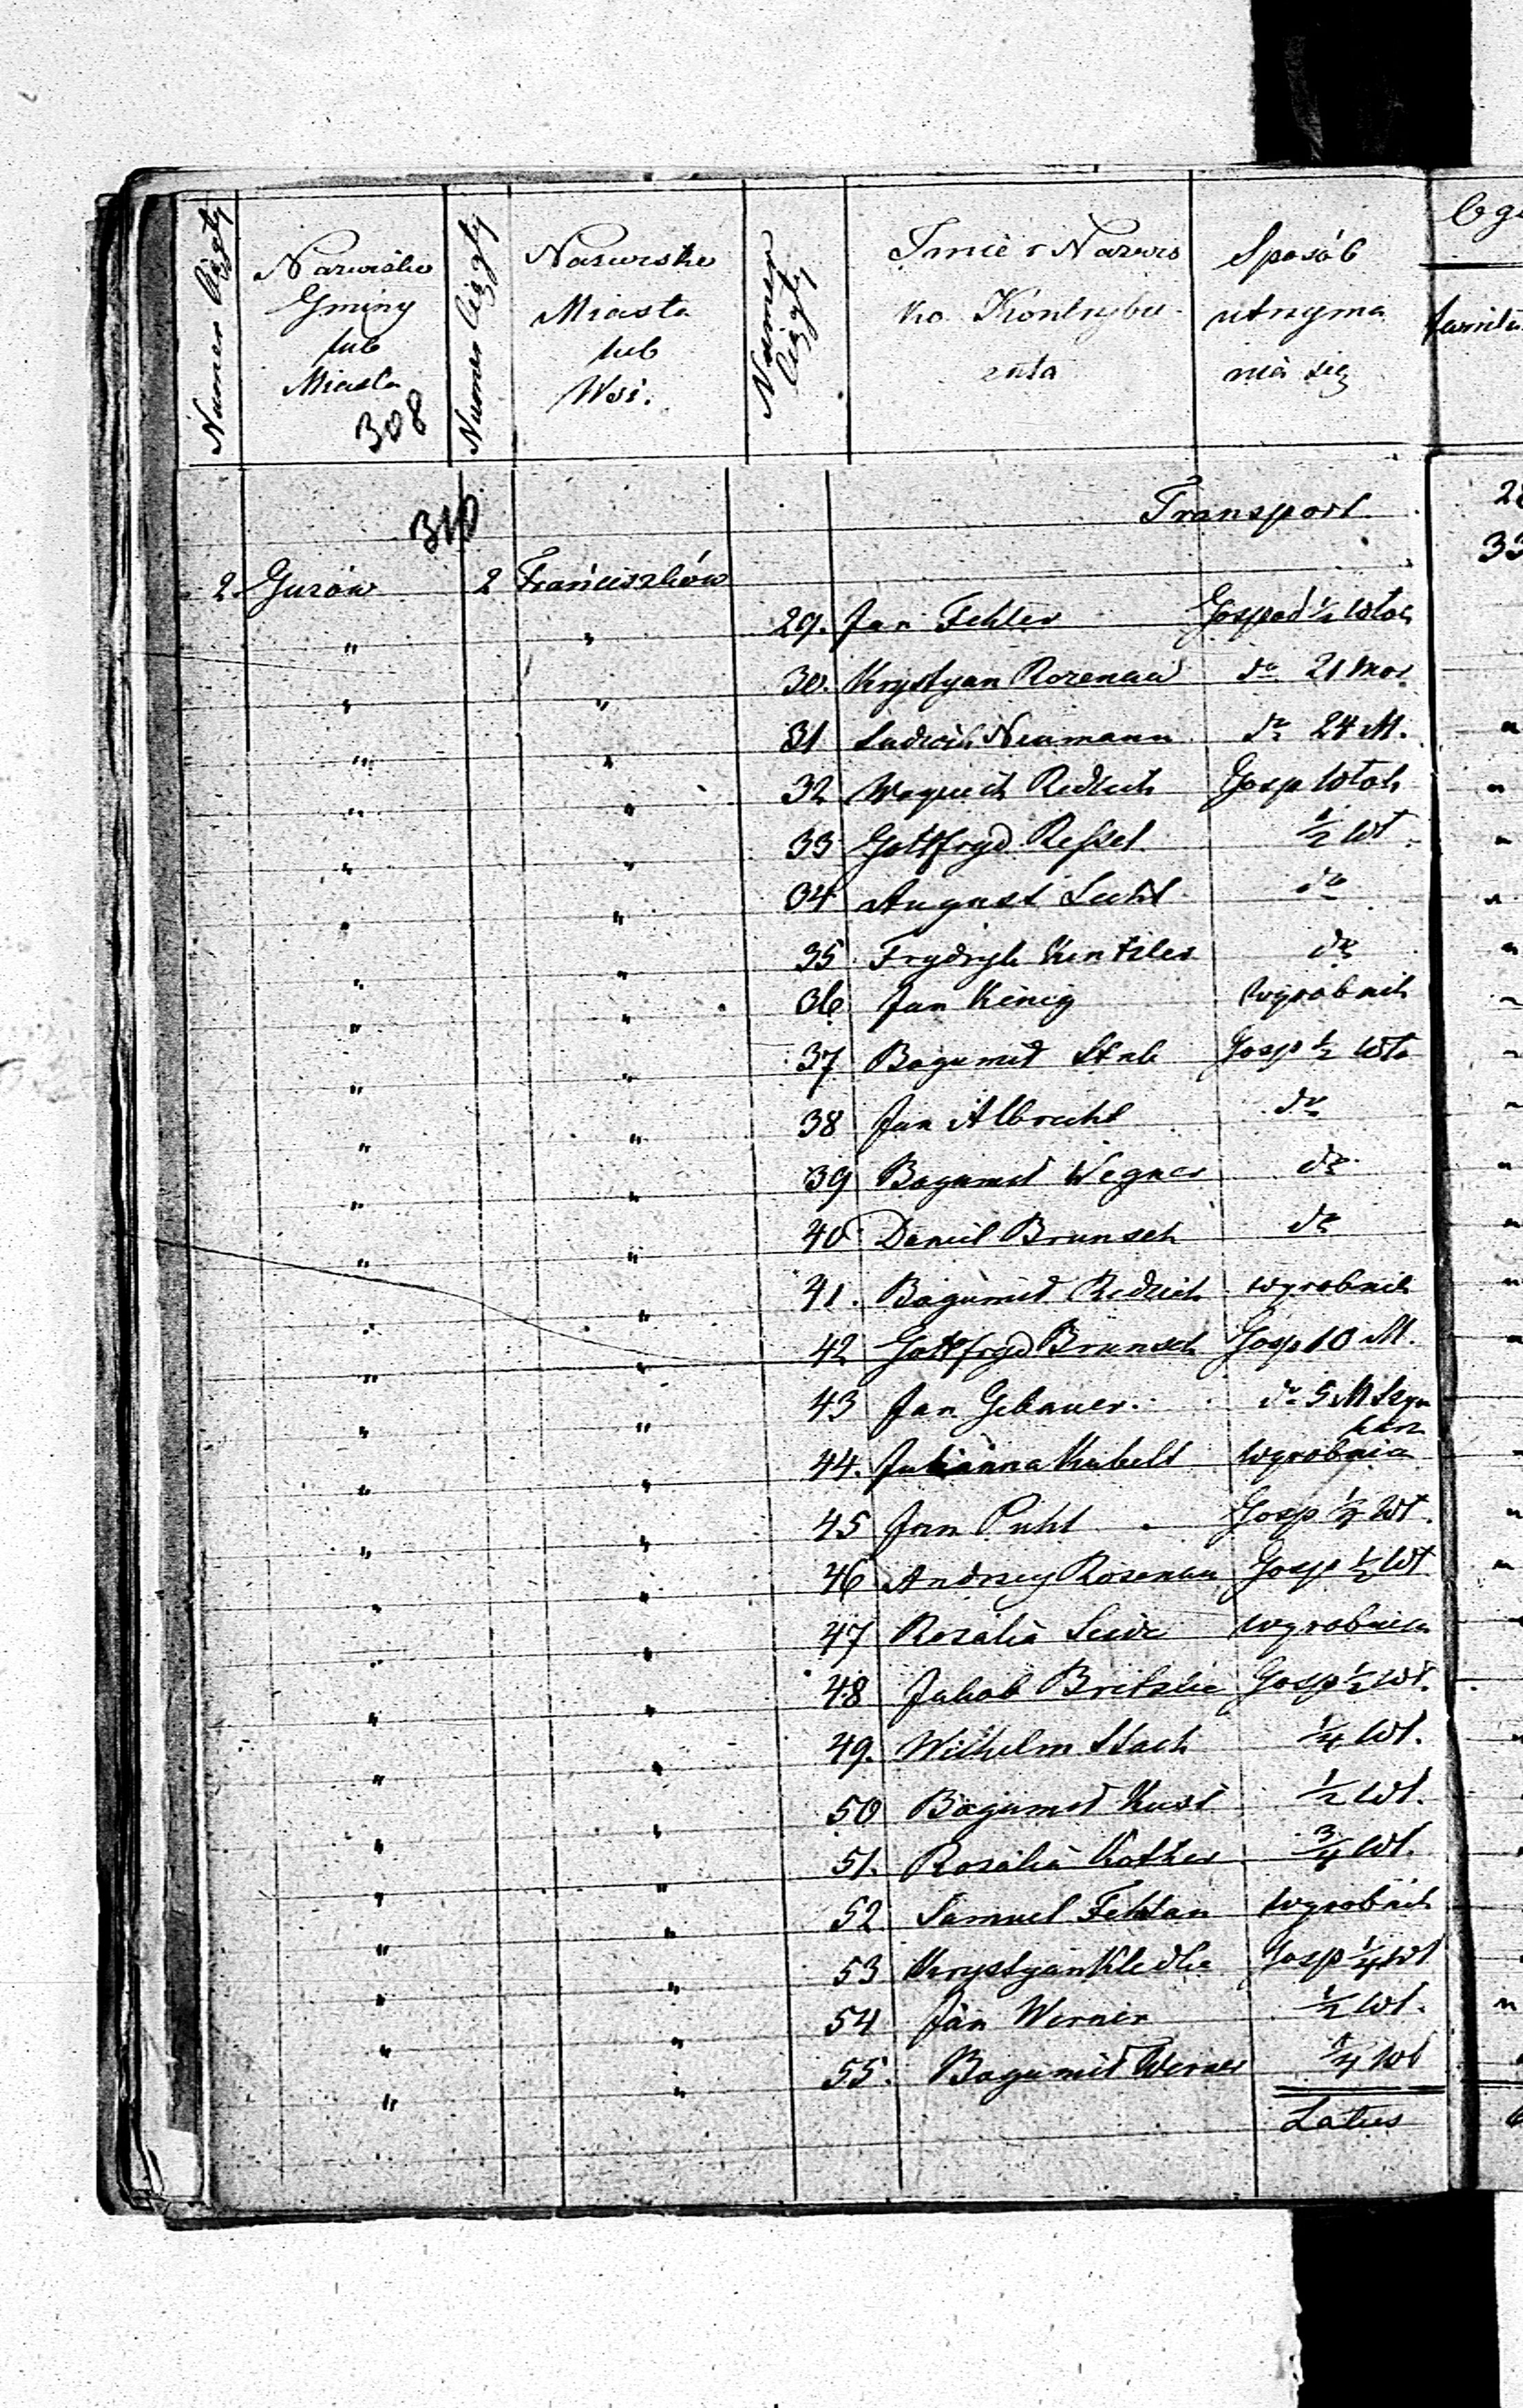 Numer Ciągły
Nazwisko Gminy lub Miasta
Numer Ciągły
Nazwisko Miasta lub Wsi.
Numer Ciągły
Imie i Nazwisko Kontrybuenta
Sposób utrzymania się
308
310
Transport 28
33
2 Guzów 2 Franciszków
" " 29. Jan Fehler Gospod ½ Włok
" " 30. Krystyan Rozenau do 21 Mor.
" " 31 Ludwik Neumann do 24 M.
" " 32 Woyciech Redlich Gosp Włok
" " 33 Gottfryd Ressel ½ Wł
" " 34 August Lucht do
" " 35 Frydryk Kentzler do
" " 36 Jan Kinig wyrobnik
" " 37 Bogumił Stab Gosp ½ Wło
" " 38 Jan Albrecht do
" " 39 Bogumił Wegner do
" " 40 Daniel Brunsch do
" " 41. Bogumił Redlich wyrobnik
" " 42 Gottfryd Brunsch Gosp 10 M.
" " 43 Jan Gebauer do 5 M Szynkarz
" " 44. Julianna Kubelt Wyrobnica
" " 45 Jan Puhl Gosp ½ Wł.
" " 46 Andrzey Rosenau Gosp ½ Wł
" " 47 Rozalia wyrobnica
" " 48 Jakob Britzke Gosp ½ Wł.
" " 49. Wilhelm Stach ¼ Wł.
" " 50 Bogumił Kust ½ Wł.
" " 51. Rozalia Kother ¾ Wł.
" " 52 Samuel Fehlan Wyrobnik
" " 53 Krystyan Kledke Gosp ¼ Wł
" " 54 Jan Werner ½ Wł.
" " 55. Bogumił Werner ¼ Wł
Latus